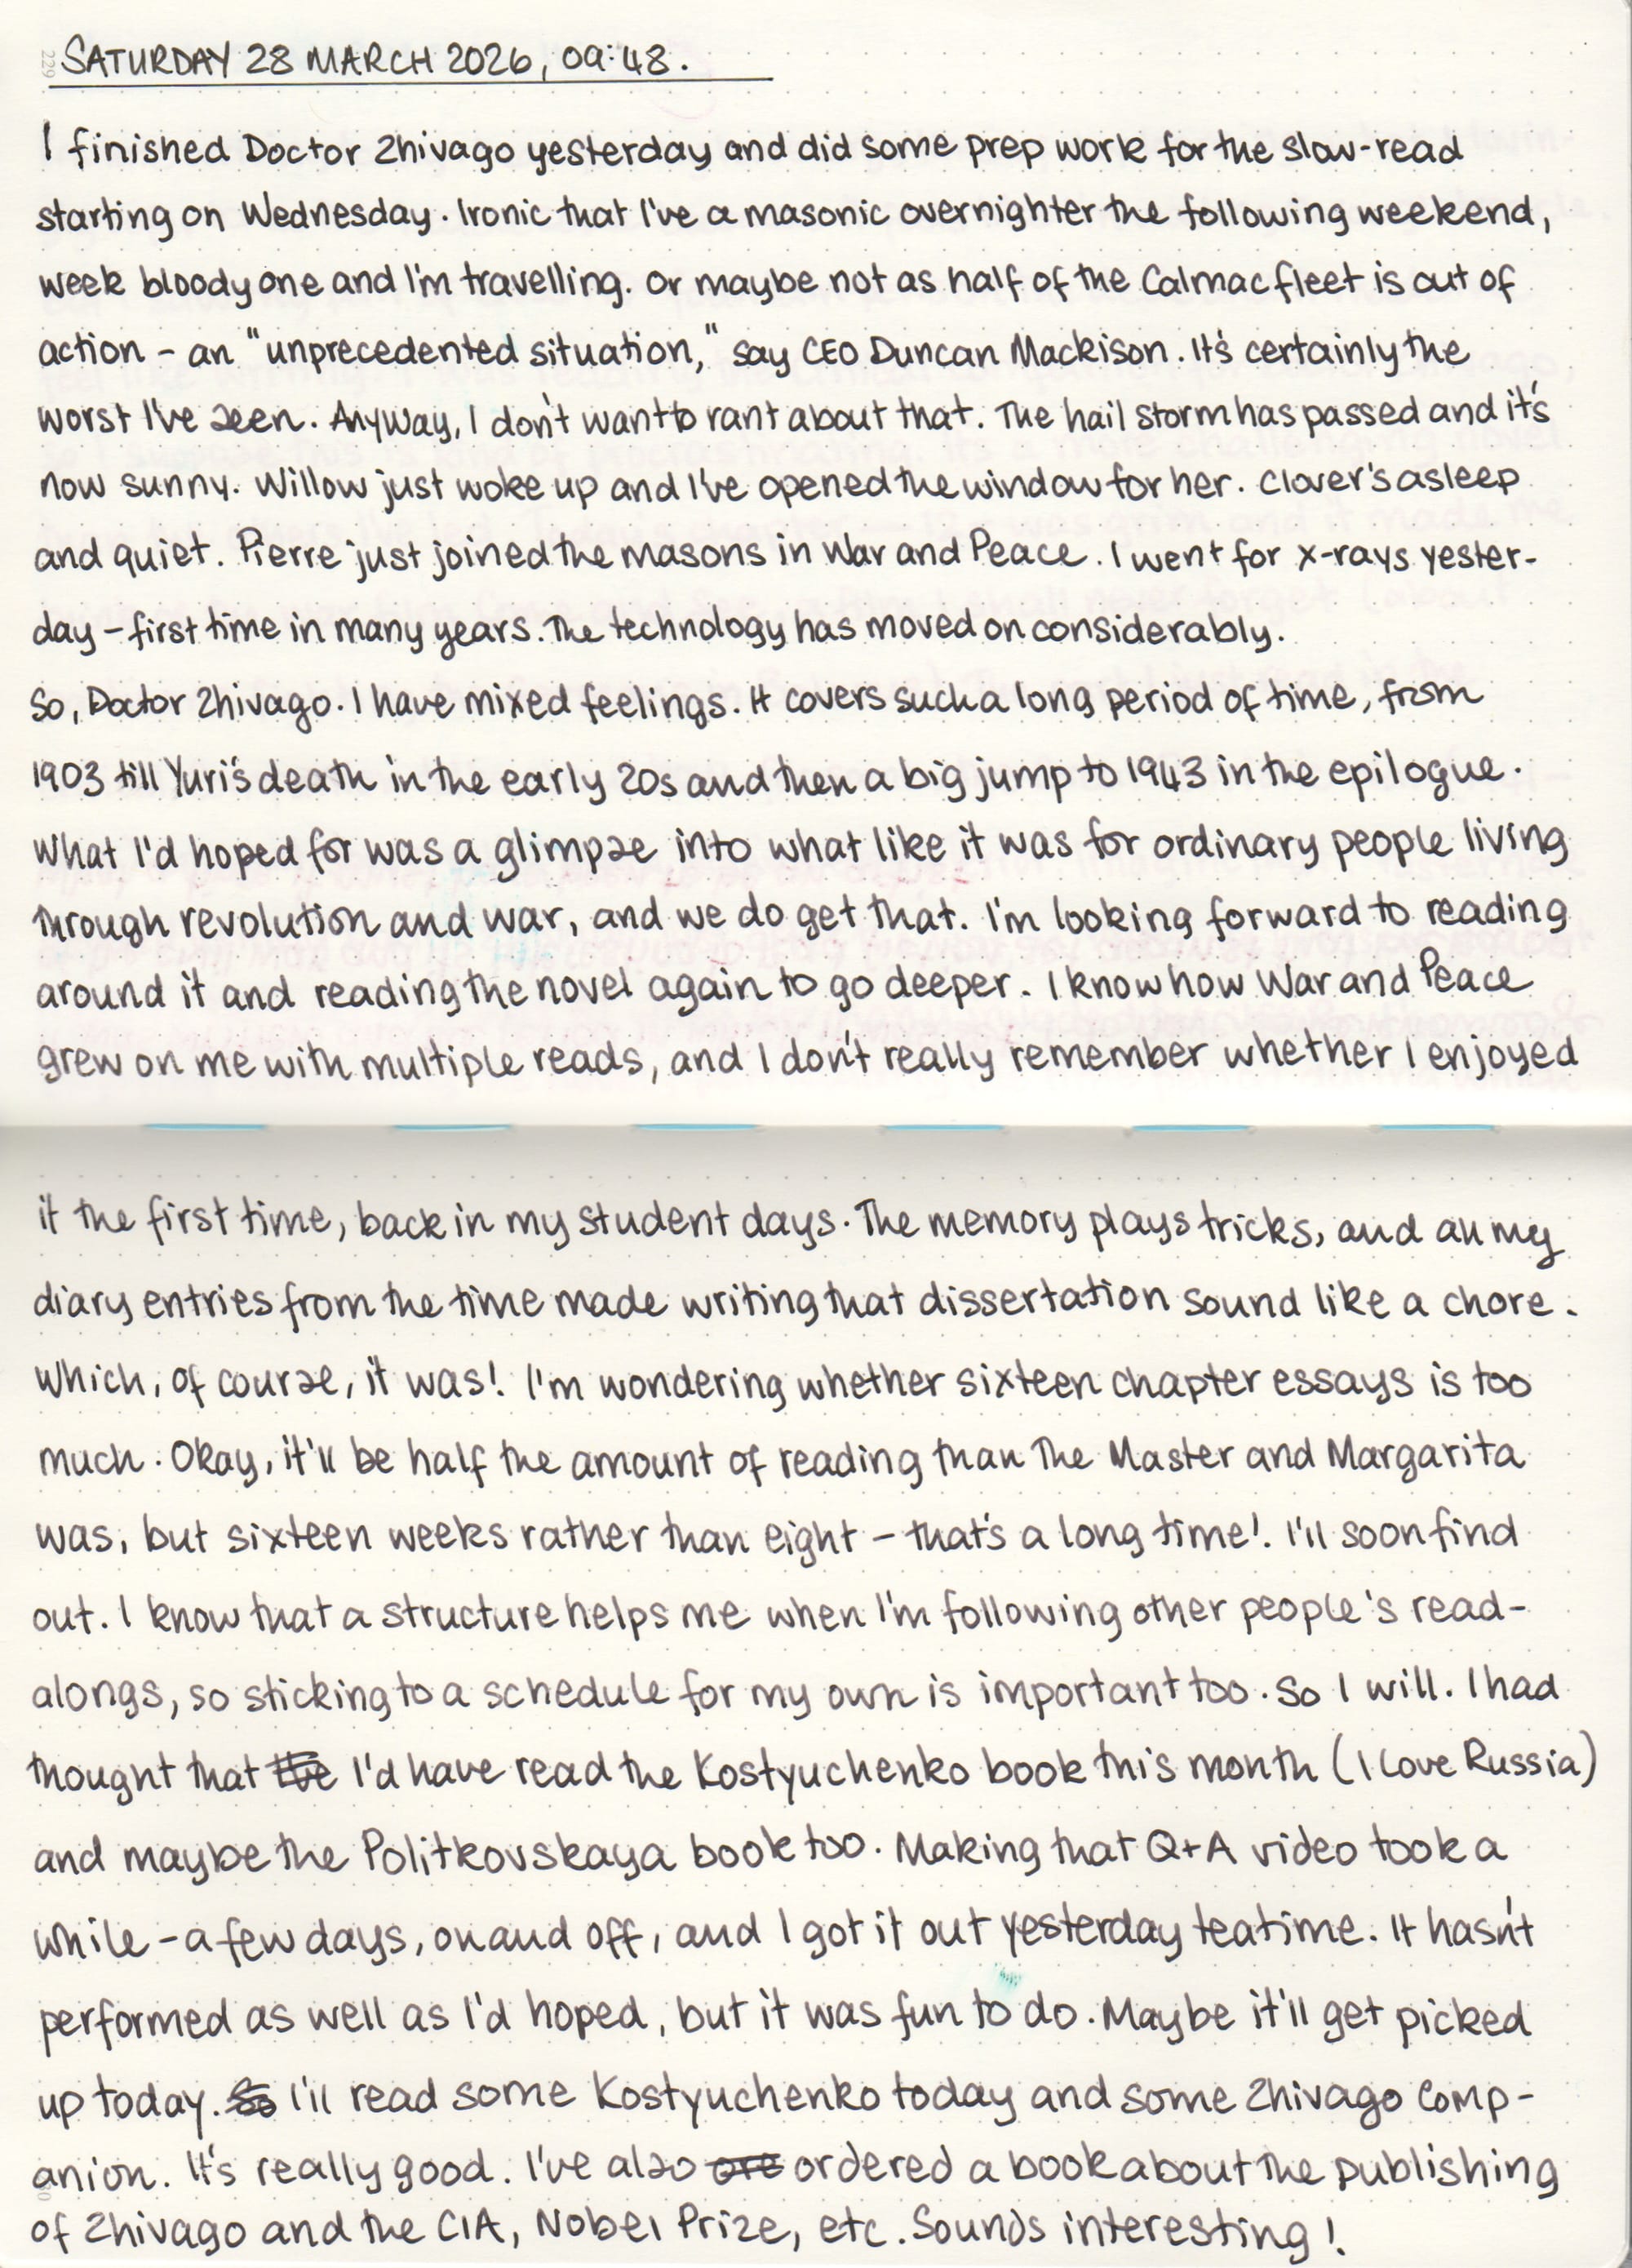 SATURDAY 28 MARCH 2026, 09:48.
I finished Doctor Zhivago yesterday and did some prep work for the slow-read
starting on Wednesday. Ironic that I've a masonic overnighter the following weekend,
week bloody one and I'm travelling. Or maybe not as half of the Calmac fleet is out of
action – an "unprecedented situation," say CEO Duncan Mackison. It's certainly the
worst I've seen. Anyway, I don't want to rant about that. The hail storm has passed and it's
now sunny. Willow just woke up and I've opened the window for her. Clover's asleep
and quiet. Pierre just joined the masons in War and Peace. I went for x-rays yester-
day – first time in many years. The technology has moved on considerably.
So, Doctor Zhivago. I have mixed feelings. It covers such a long period of time, from
1903 till Yuri's death in the early 20s and then a big jump to 1943 in the epilogue.
What I'd hoped for was a glimpse into what like it was for ordinary people living
through revolution and war, and we do get that. I'm looking forward to reading
around it and reading the novel again to go deeper. I know how War and Peace
grew on me with multiple reads, and I don't really remember whether I enjoyed
it the first time, back in my student days. The memory plays tricks, and all my
diary entries from the time made writing that dissertation sound like a chore.
Which, of course, it was! I'm wondering whether sixteen chapter essays is too
much. Okay, it'll be half the amount of reading than The Master and Margarita
was, but sixteen weeks rather than eight – that's a long time!. I'll soon find
out. I know that a structure helps me when I'm following other people's read-
alongs, so sticking to a schedule for my own is important too. So I will. I had
thought that I'd have read the Kostyuchenko book this month (I Love Russia)
and maybe the Politkovskaya book too. Making that Q+A video took a
while – a few days, on and off, and I got it out yesterday teatime. It hasn't
performed as well as I'd hoped, but it was fun to do. Maybe it'll get picked
up today. So I'll read some Kostyuchenko today and some Zhivago Comp-
anion. It's really good. I've also ore ordered a book about the publishing
of Zhivago and the CIA, Nobel Prize, etc. Sounds interesting!